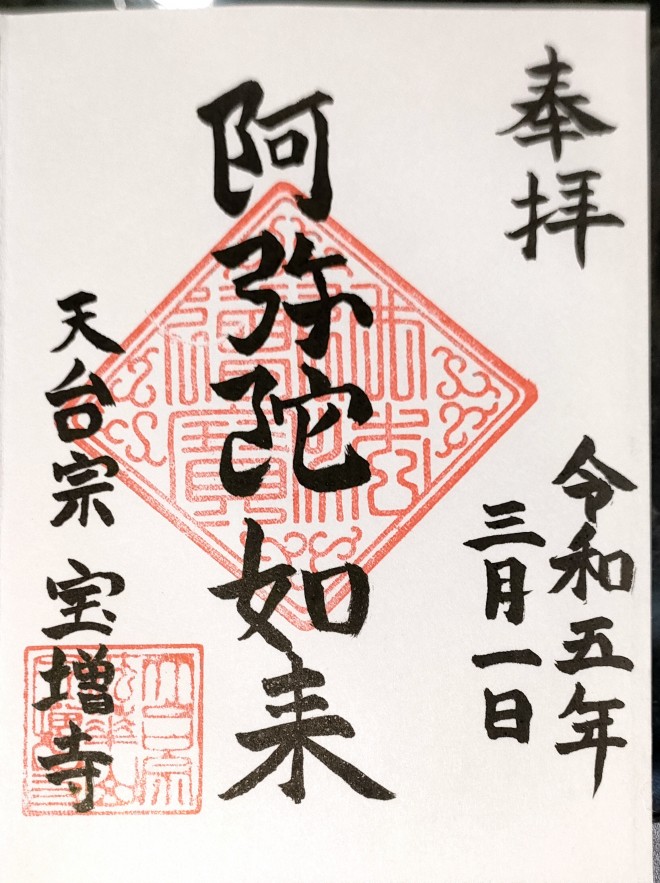 奉拝
令和五年
三月一日
阿弥陀如来
天台宗 宝増寺
佛法僧寶